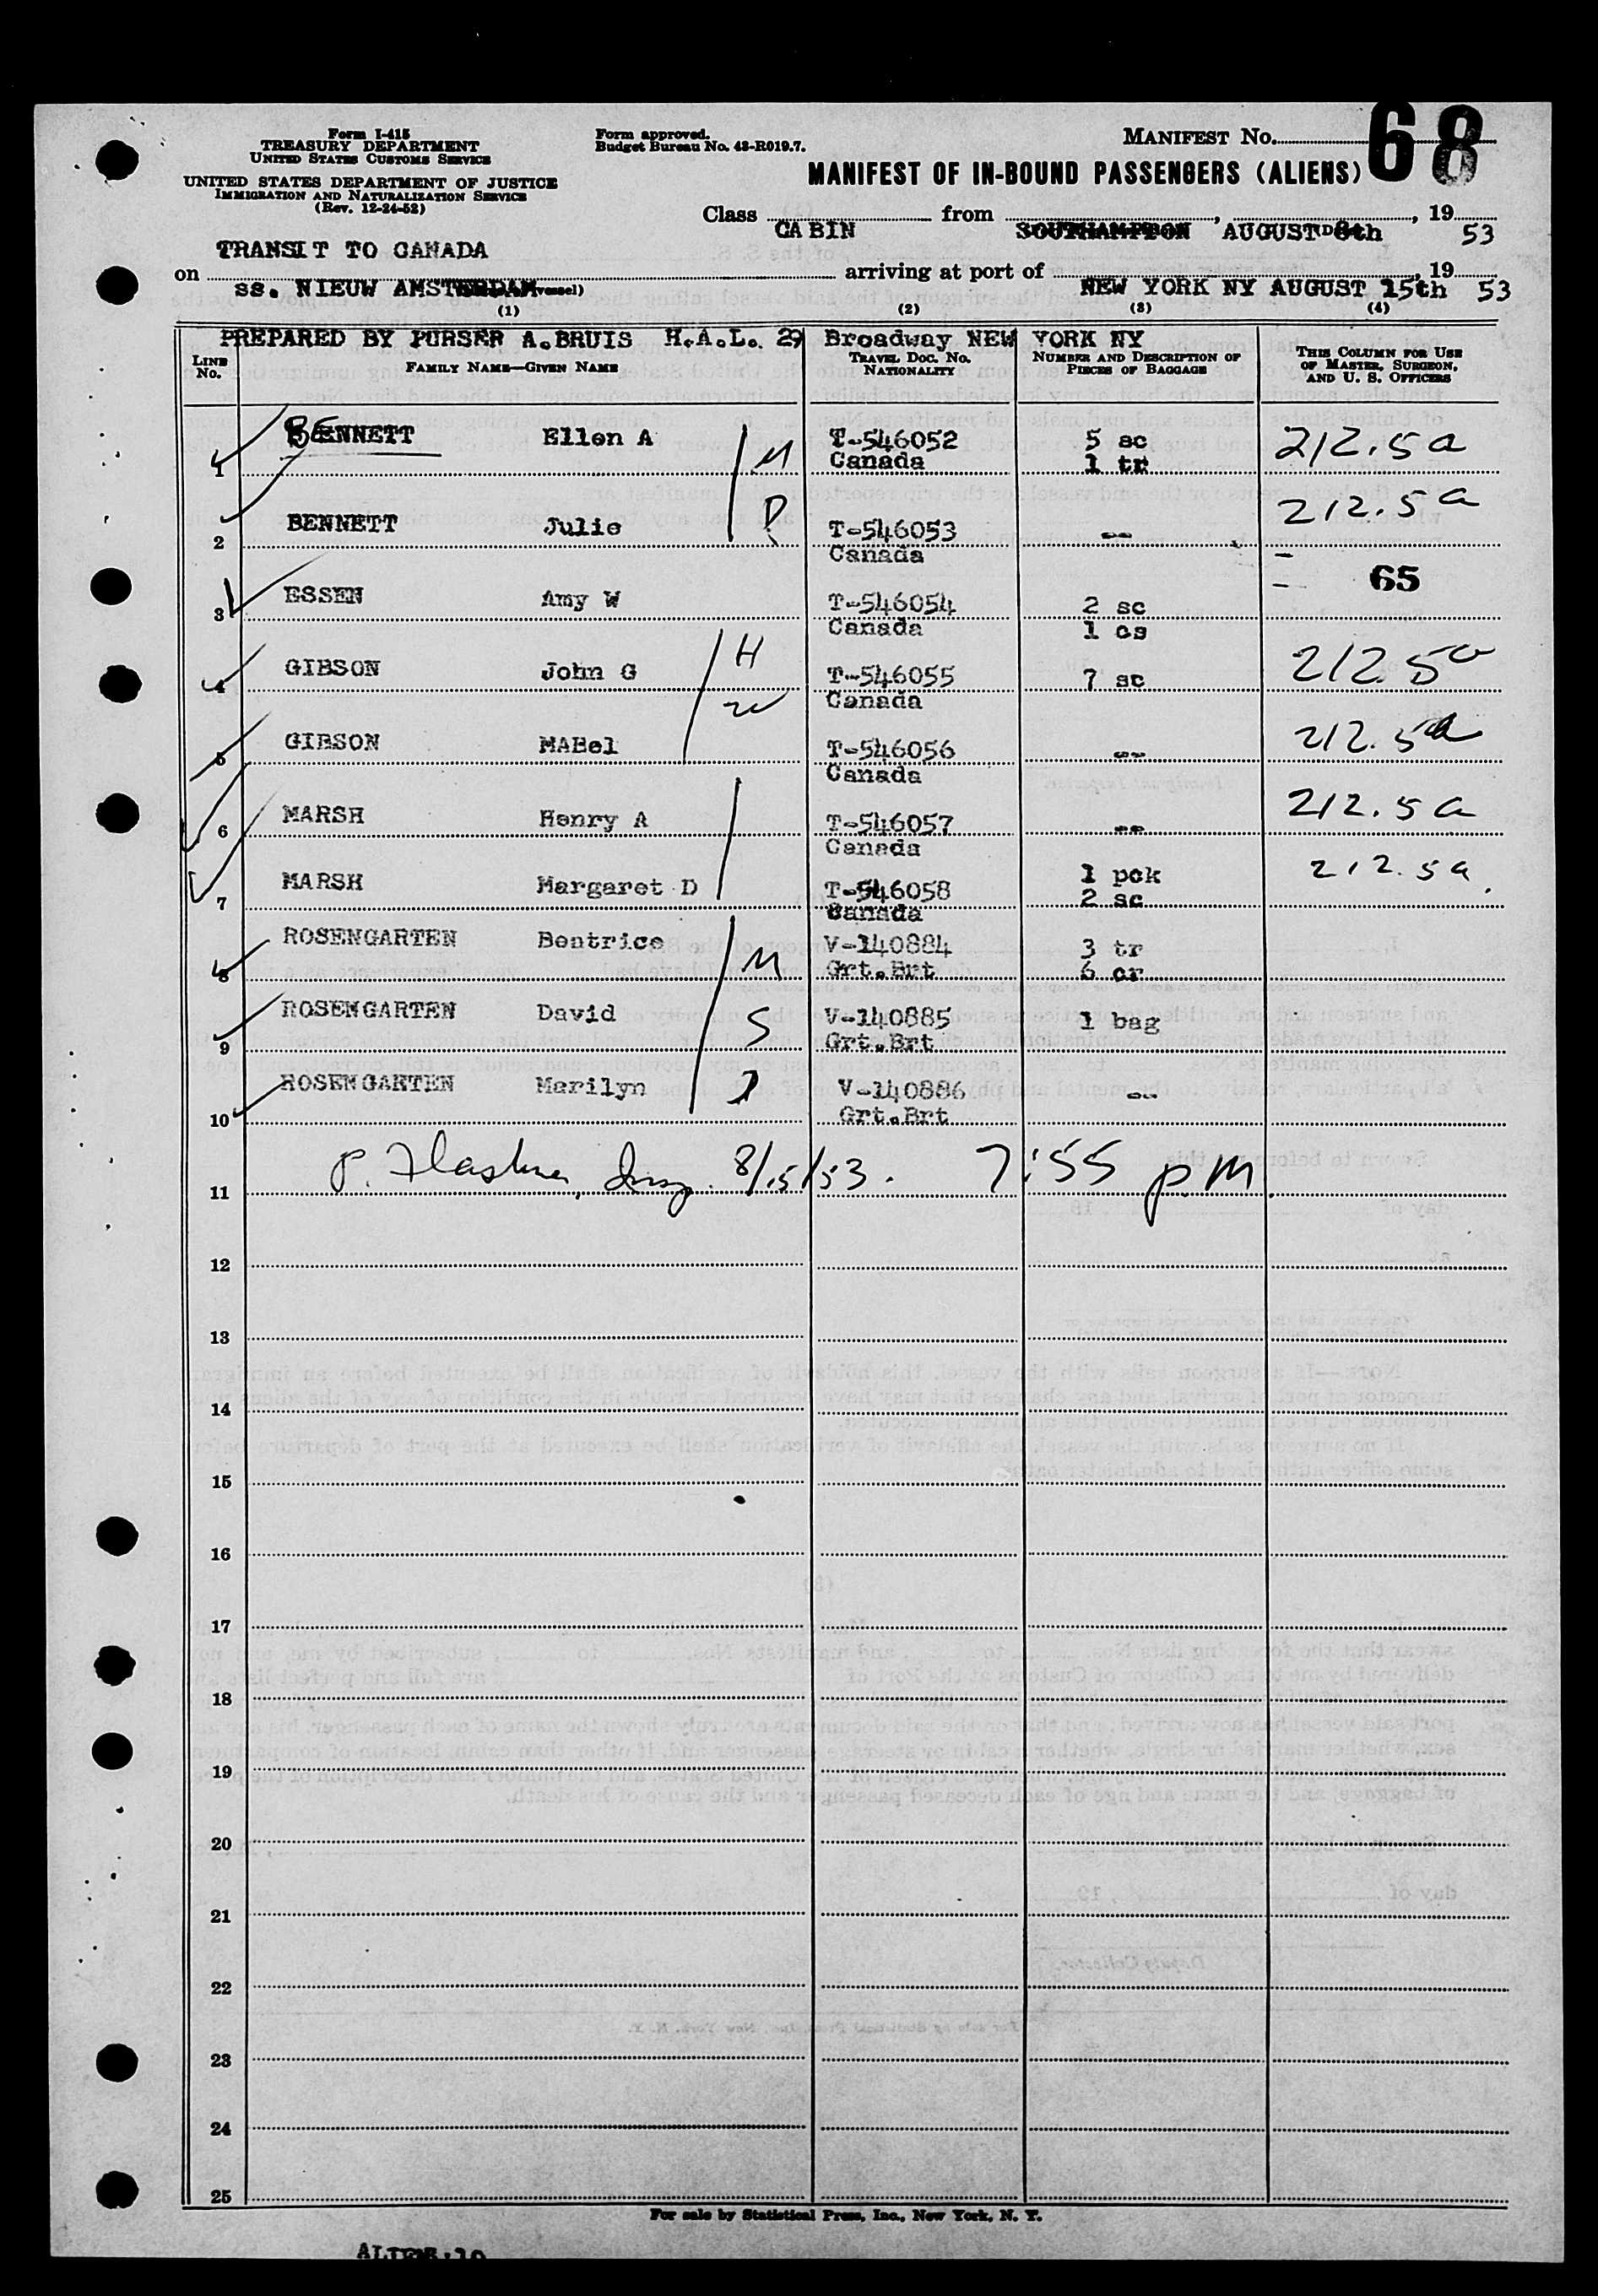 Form I-415
TREASURY DEPARTMENT
UNITED STATES CUSTOMS SERVICE
UNITED STATES DEPARTMENT OF JUSTICE
IMMIGRATION AND NATURALIZATION SERVICE
(Rev. 12-24-52)
Form approved.
Budget Bureau No. 43-R019.7.
MANIFEST No. 68
MANIFEST OF IN-BOUND PASSENGERS (ALIENS)
Class CABIN from SOUTHAMPTON, AUGUST 8th, 19 53
TRANSIT TO CANADA
on ss. NIEUW AMSTERDAM arriving at port of NEW YORK NY AUGUST 15th, 19 53
(1) (2) (3) (4)
PREPARED BY PURSER A.BRUIS H.A.L. 29 Broadway NEW YORK NY
LINE No. FAMILY NAME—GIVEN NAME TRAVEL DOC. NO. NATIONALITY NUMBER AND DESCRIPTION OF PIECES OF BAGGAGE THIS COLUMN FOR USE OF MASTER, SURGEON, AND U. S. OFFICERS
1 BENNETT Ellen A M T-546052 5 sc 212.5a
Canada 1 tr
2 BENNETT Julie D T-546053 -- 212.5a
Canada
65
3 ESSEN Amy W T-546054 2 sc
Canada 1 cs
4 GIBSON John G H T-546055 7 sc 212.5a
Canada
5 GIBSON MABel W T-546056 -- 212.5a
Canada
6 MARSH Henry A T-546057 -- 212.5a
Canada
7 MARSH Margaret D T-546058 1 pck 212.5a
Canada 2 sc
8 ROSENGARTEN Beatrice M V-140884 3 tr
Grt.Brt 6 cr
9 ROSENGARTEN David S V-140885 1 bag
Grt.Brt
10 ROSENGARTEN Marilyn D V-140886 --
Grt.Brt
11 P. Insp. 8/15/53. 7:55 pm
12
13
14
15
16
17
18
19
20
21
22
23
24
25
For sale by Statistical Press, Inc., New York, N. Y.